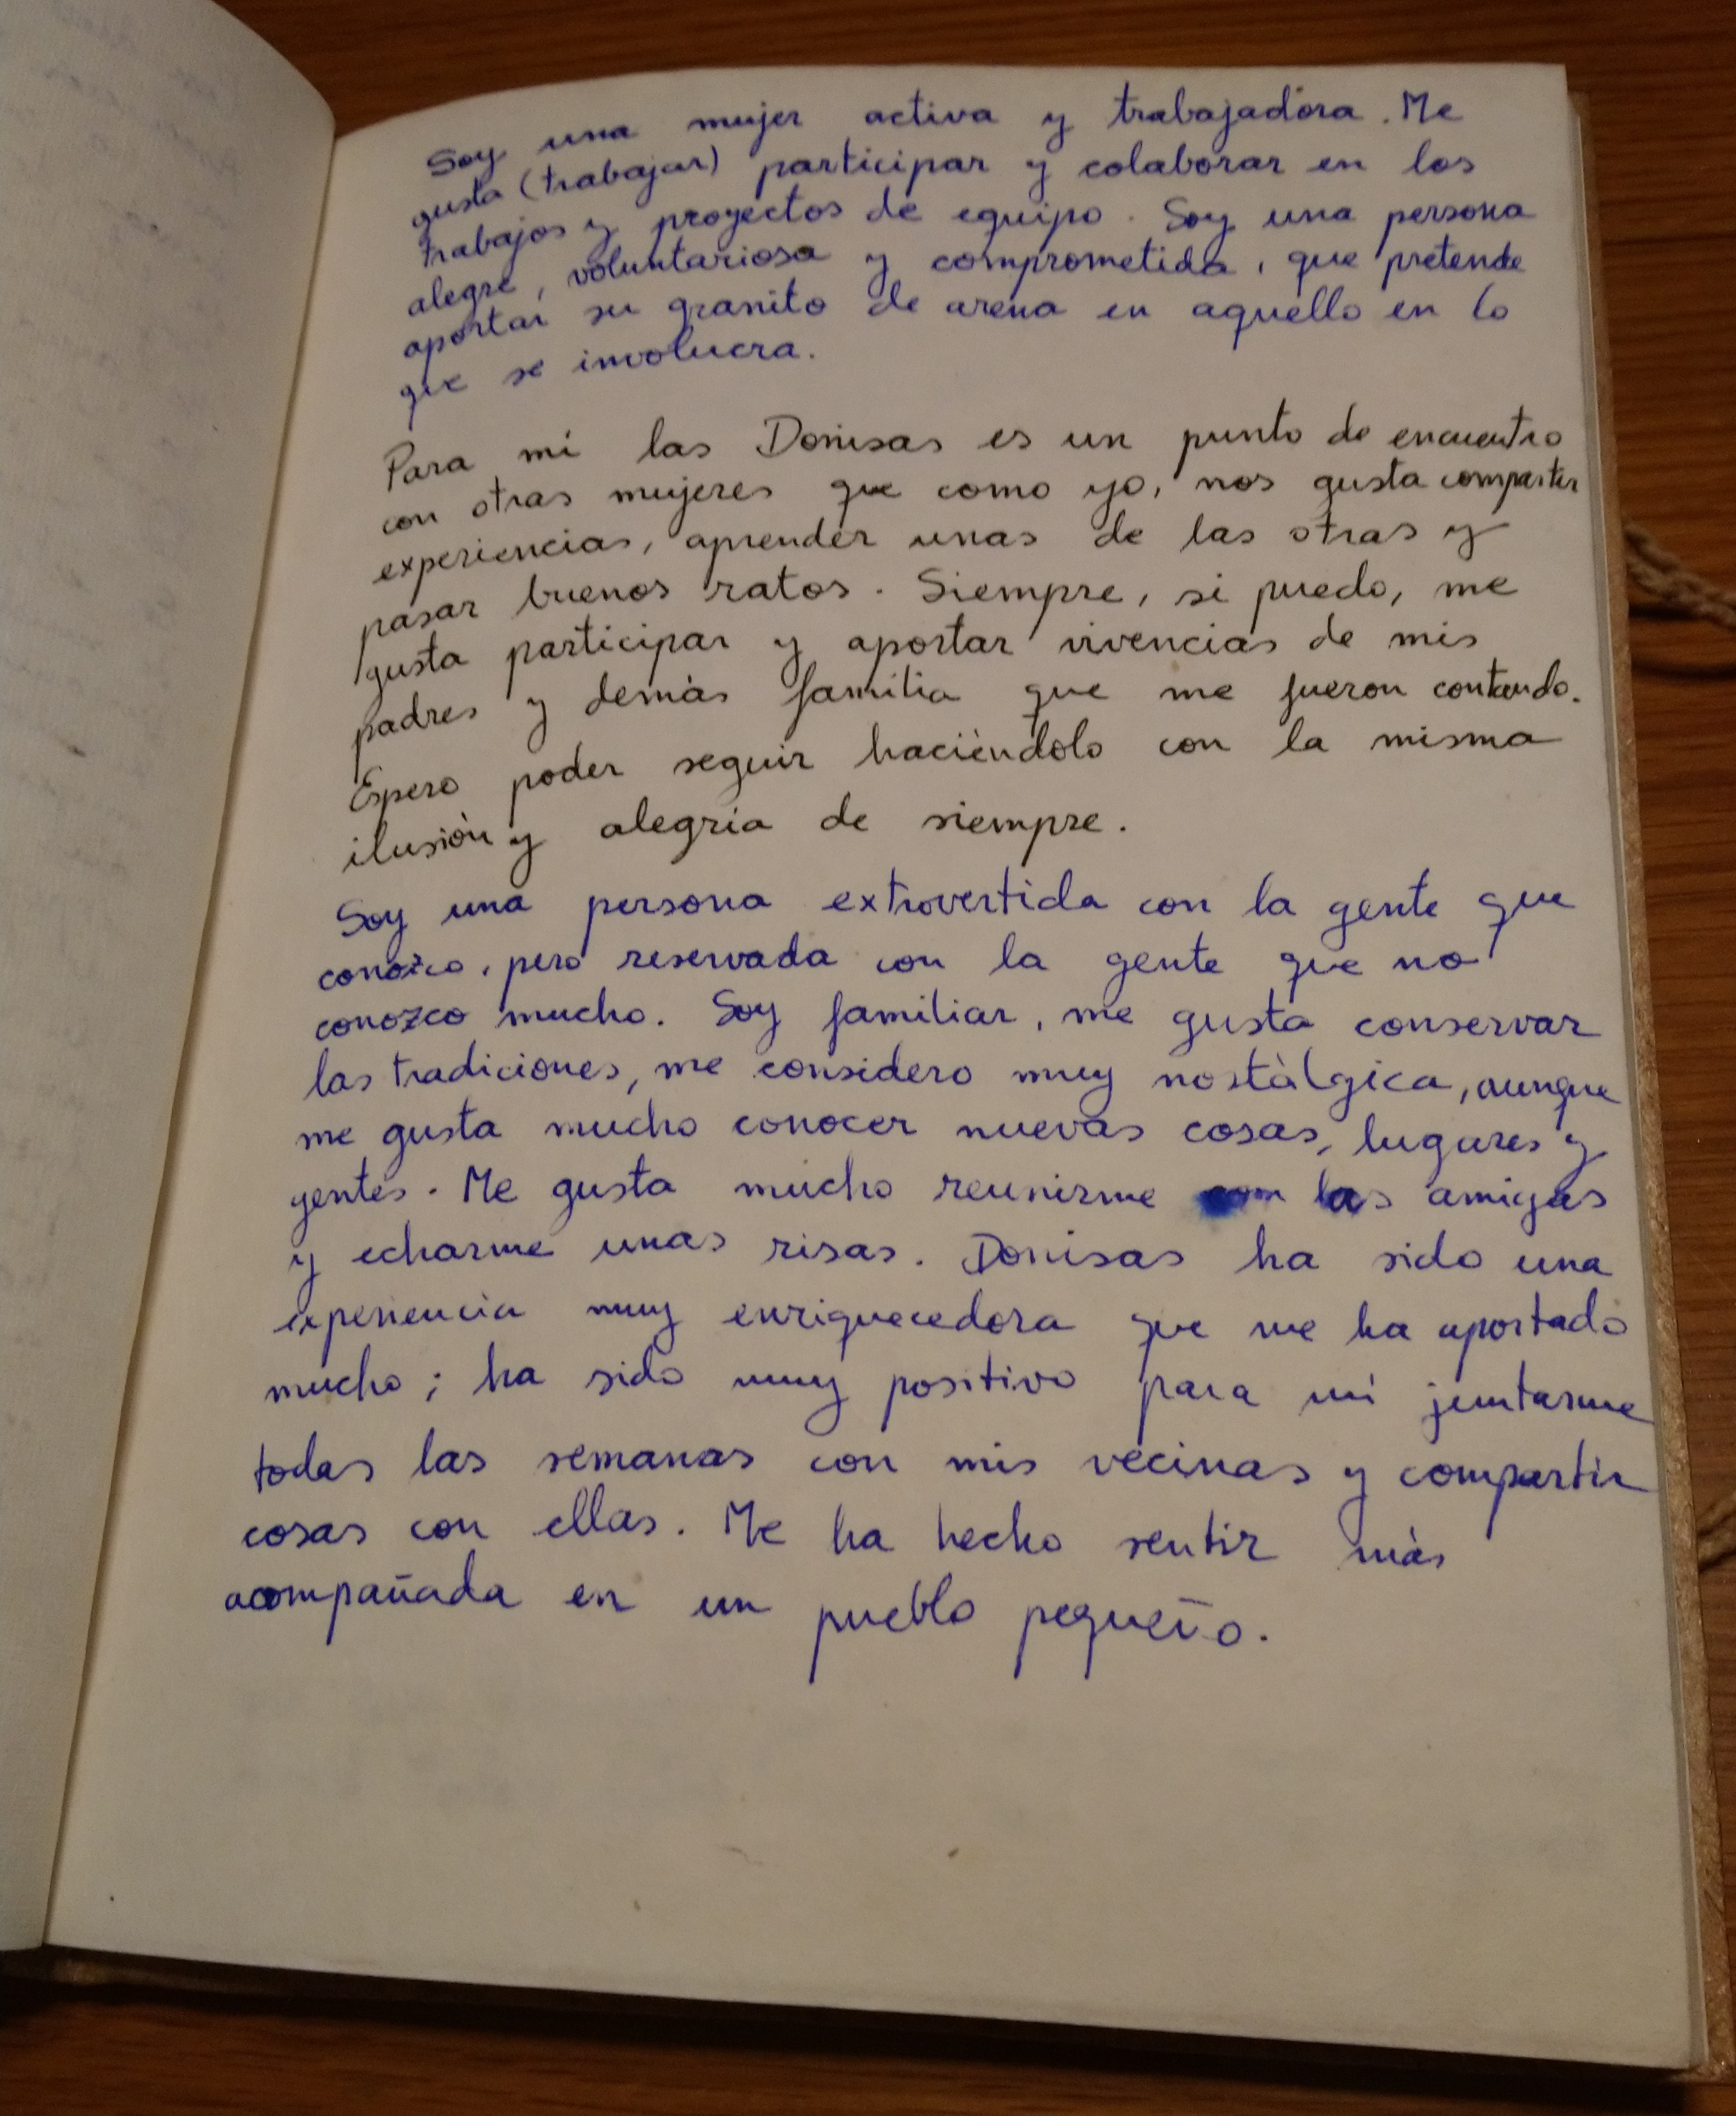 Soy una mujer activa y trabajadora. Me
gusta (trabajar) participar y colaborar en los
trabajos y proyectos de equipo. Soy una persona
alegre, voluntariosa y comprometida, que pretende
aportar su granito de arena en aquello en lo
que se involucra.
Para mí las Donisas es un punto de encuentro
con otras mujeres que como yo, nos gusta compartir
experiencias, aprender unas de las otras y
pasar buenos ratos. Siempre, si puedo, me
gusta participar y aportar vivencias de mis
padres y demás familia que me fueron contando.
Espero poder seguir haciéndolo con la misma
ilusión y alegría de siempre.
Soy una persona extrovertida con la gente que
conozco, pero reservada con la gente que no
conozco mucho. Soy familiar, me gusta conservar
las tradiciones, me considero muy nostàlgica, aunque
me gusta mucho conocer nuevas cosas, lugares y
gentes. Me gusta mucho reunirme con las amigas
y echarme unas risas. Donisas ha sido una
experiencia muy enriquecedora que me ha aportado
mucho; ha sido muy positivo para mí juntarme
todas las semanas con mis vecinas y compartir
cosas con ellas. Me ha hecho sentir más
acompañada en un pueblo pequeño.